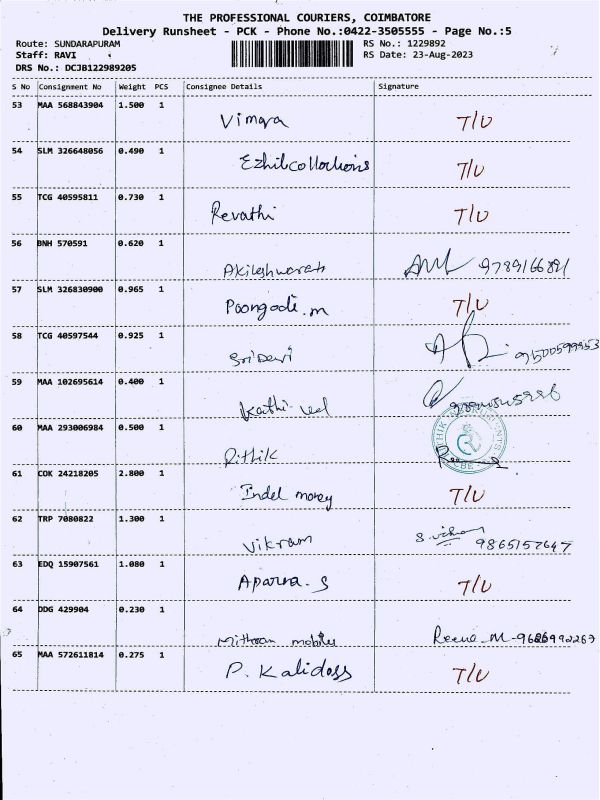 THE PROFESSIONAL COURIERS, COIMBATORE
Delivery Runsheet - PCK - Phone No.:0422-3505555 - Page No.:5
Route: SUNDARAPURAM RS No.: 1229892
Staff: RAVI RS Date: 23-Aug-2023
DRS No.: DCJB122989205
S No Consignment No Weight PCS Consignee Details Signature
53 MAA 568843904 1.500 1 Vimqra T/U
54 SLM 326648056 0.490 1 Ezhilcollections T/U
55 TCG 40595811 0.730 1 Revathi T/U
56 BNH 570591 0.620 1 Akileshwarah 9789166891
57 SLM 326830900 0.965 1 Poongodi.m T/U
58 TCG 40597544 0.925 1 Sri Devi 9500599953
59 MAA 102695614 0.400 1 Kathi vel
60 MAA 293006984 0.500 1 Rithik
61 COK 24218205 2.800 1 Indel money T/U
62 TRP 7080822 1.300 1 Vikram 9865157647
63 EDQ 15907561 1.080 1 Aparna. S T/U
64 DDG 429904 0.230 1 Mithran mobiles Reena-M-9626992263
65 MAA 572611814 0.275 1 P. Kalidoss T/U